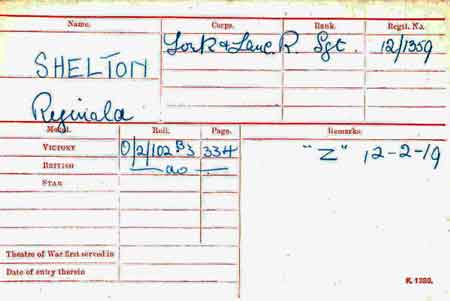 Name. Corps. Rank. Regtl. No.
SHELTON York & Lanc. R. Sgt. 12/1359
Reginald
Medal. Roll. Page. Remarks.
VICTORY O/2/102 B3 334 "Z" 12-2-19
BRITISH — do —
STAR
Theatre of War first served in
Date of entry therein
K. 1380.